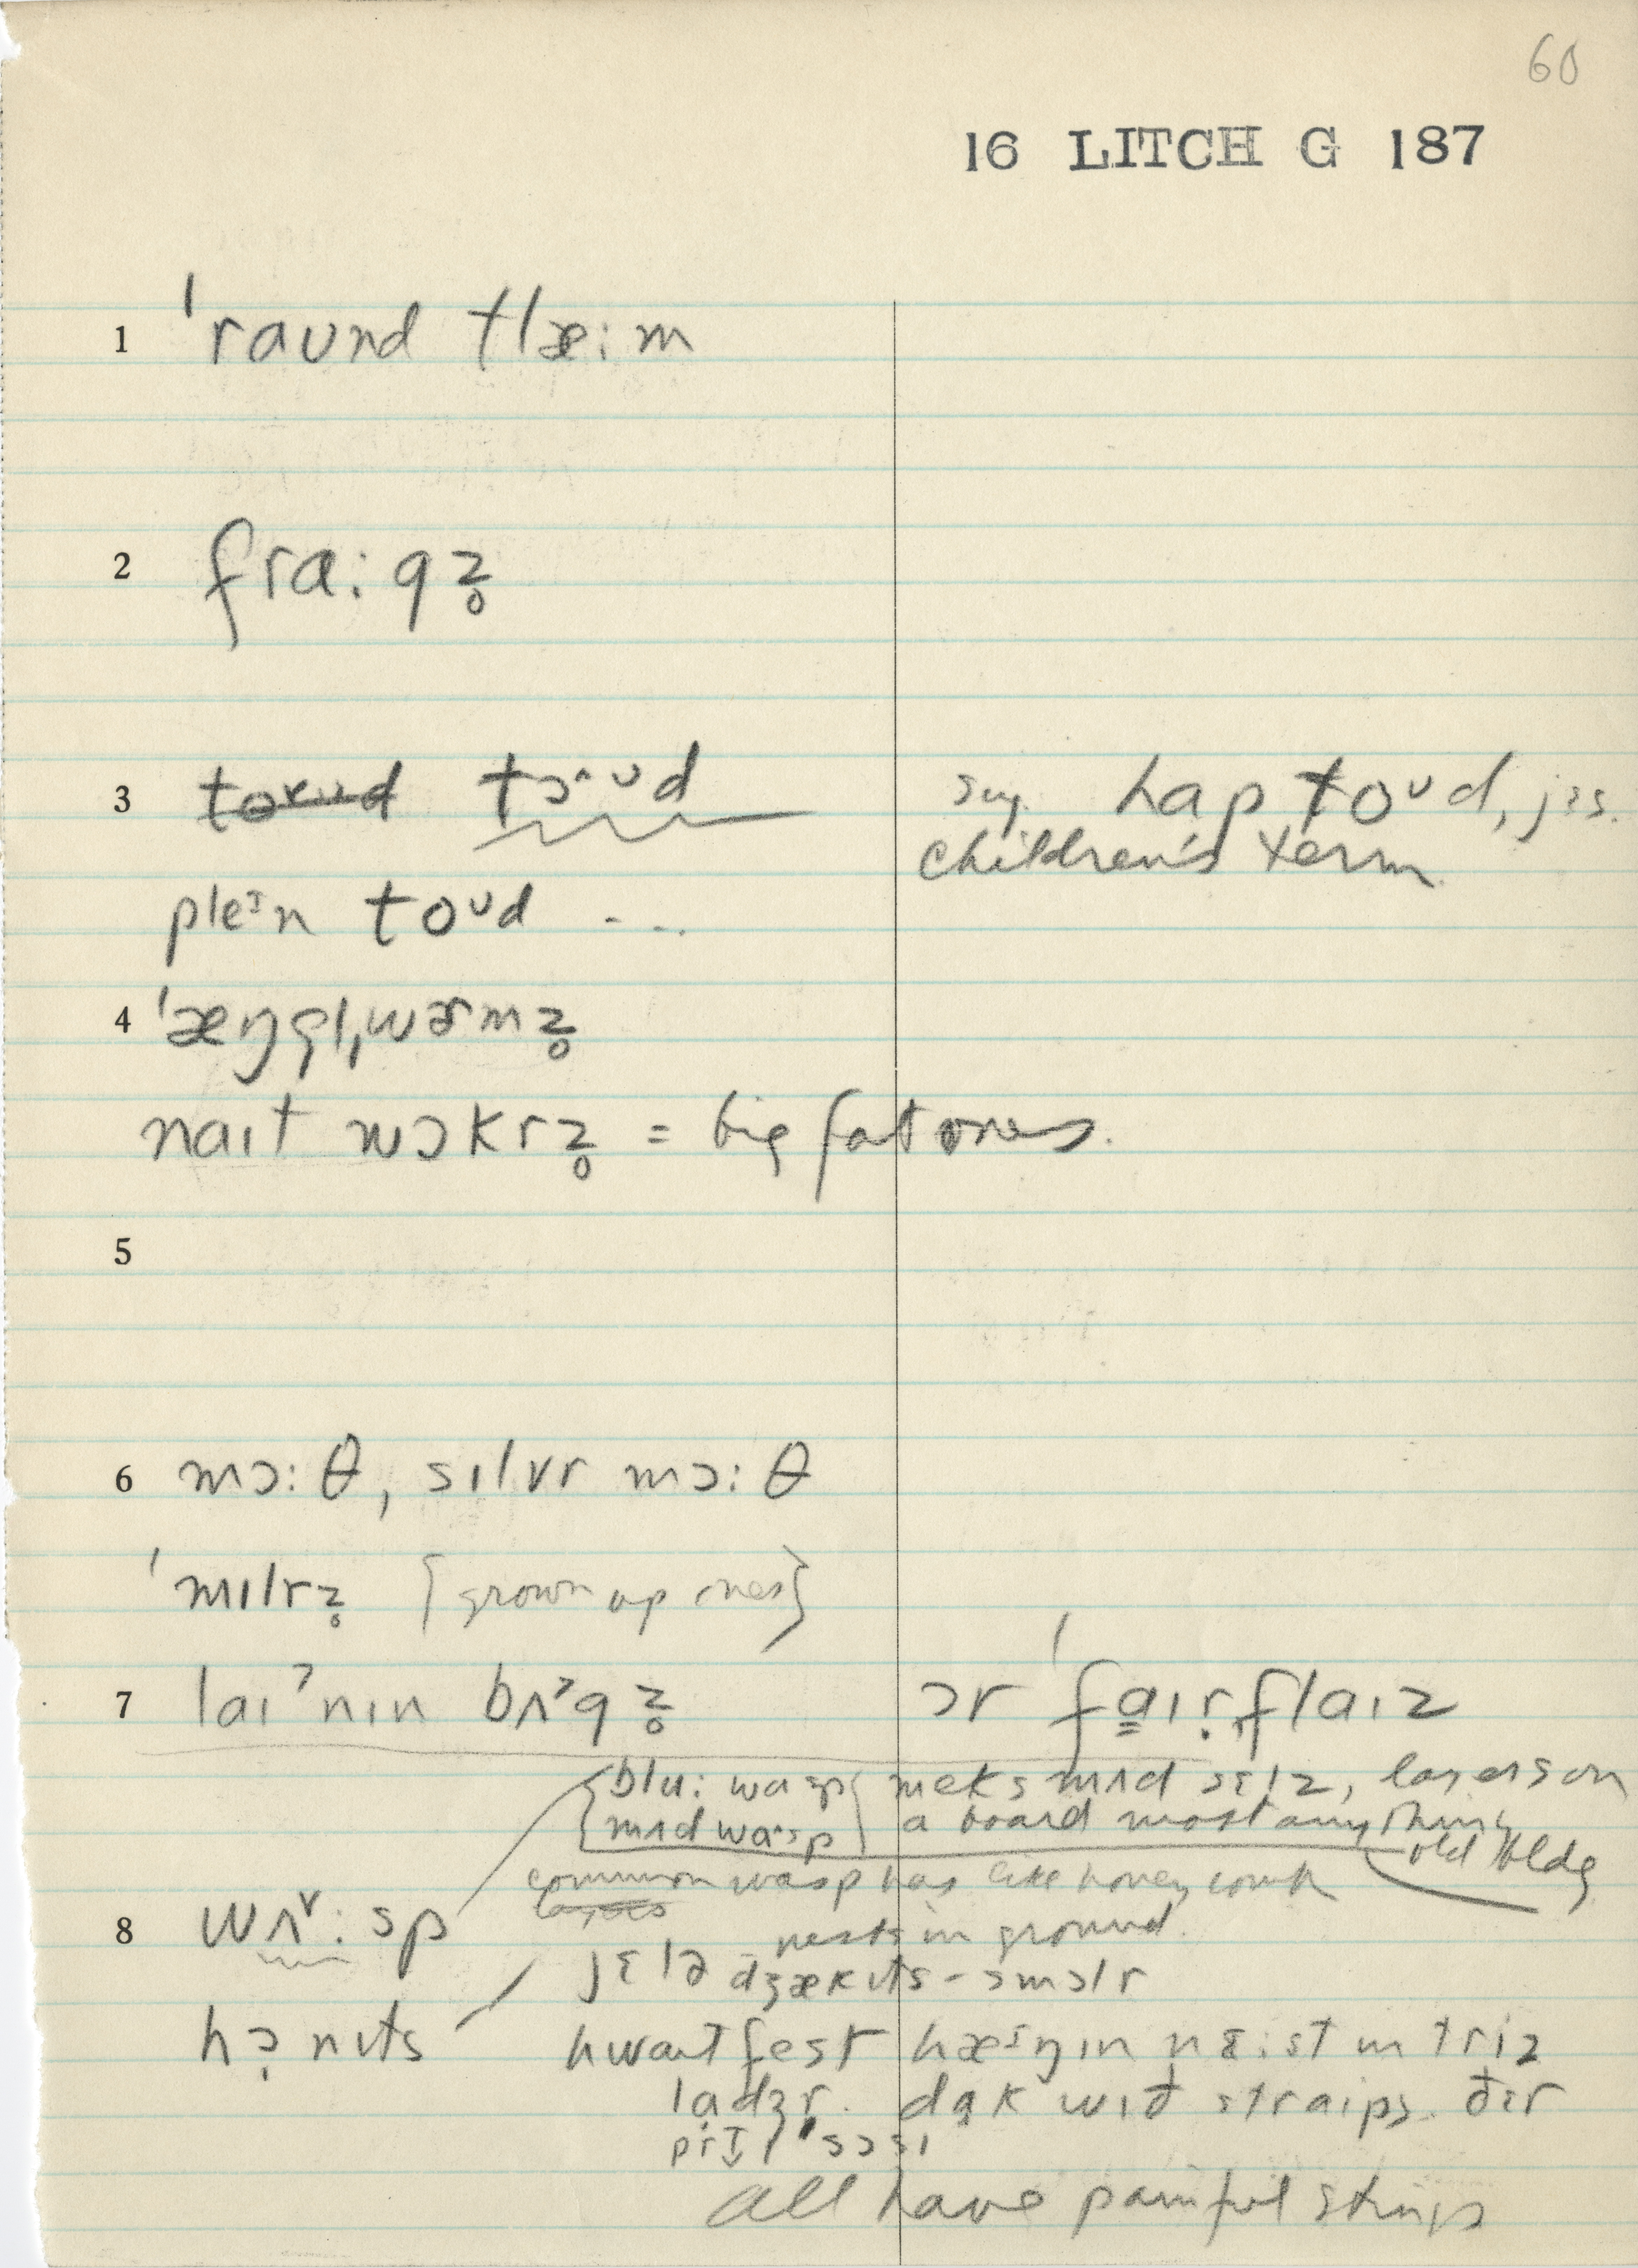 60
16 LITCH G 187
1 ˈraʊnd klæ:m
2 frɑ:gz̥
3 tɔ^ʊd
sug. hap toᴜd, jɛs.
children's term.
pleɪn toᴜd - ...
4 ˈæŋgl̩ˌwɚmz̥
naɪt wɔkrz̥ = big fat ones.
5
6 mɔ:θ, sɪlvr mɔ:θ
ˈmɪlrz̥ {grown up ones}
7 laɪʔnɪn bʌ>gz̥ ɔr ˈfaɪrˌflaɪz
{blu: wasp} meks mʌd sɛlz, layers on
{mʌd wɑ^sp} a board most anything
old bldg
common wasp has like honey comb
nests in ground.
8 wʌ˅:sp
jɛlə dʒækɪts - smɔlr
hɔ̣nɪts
hwaɪt fest hæɪŋɪn nɛ:st in triz
lɑdʒr. dɑk wɪð straɪps. ðɛr
prɪtɪ ˈsɔsɪ
all have painful stings